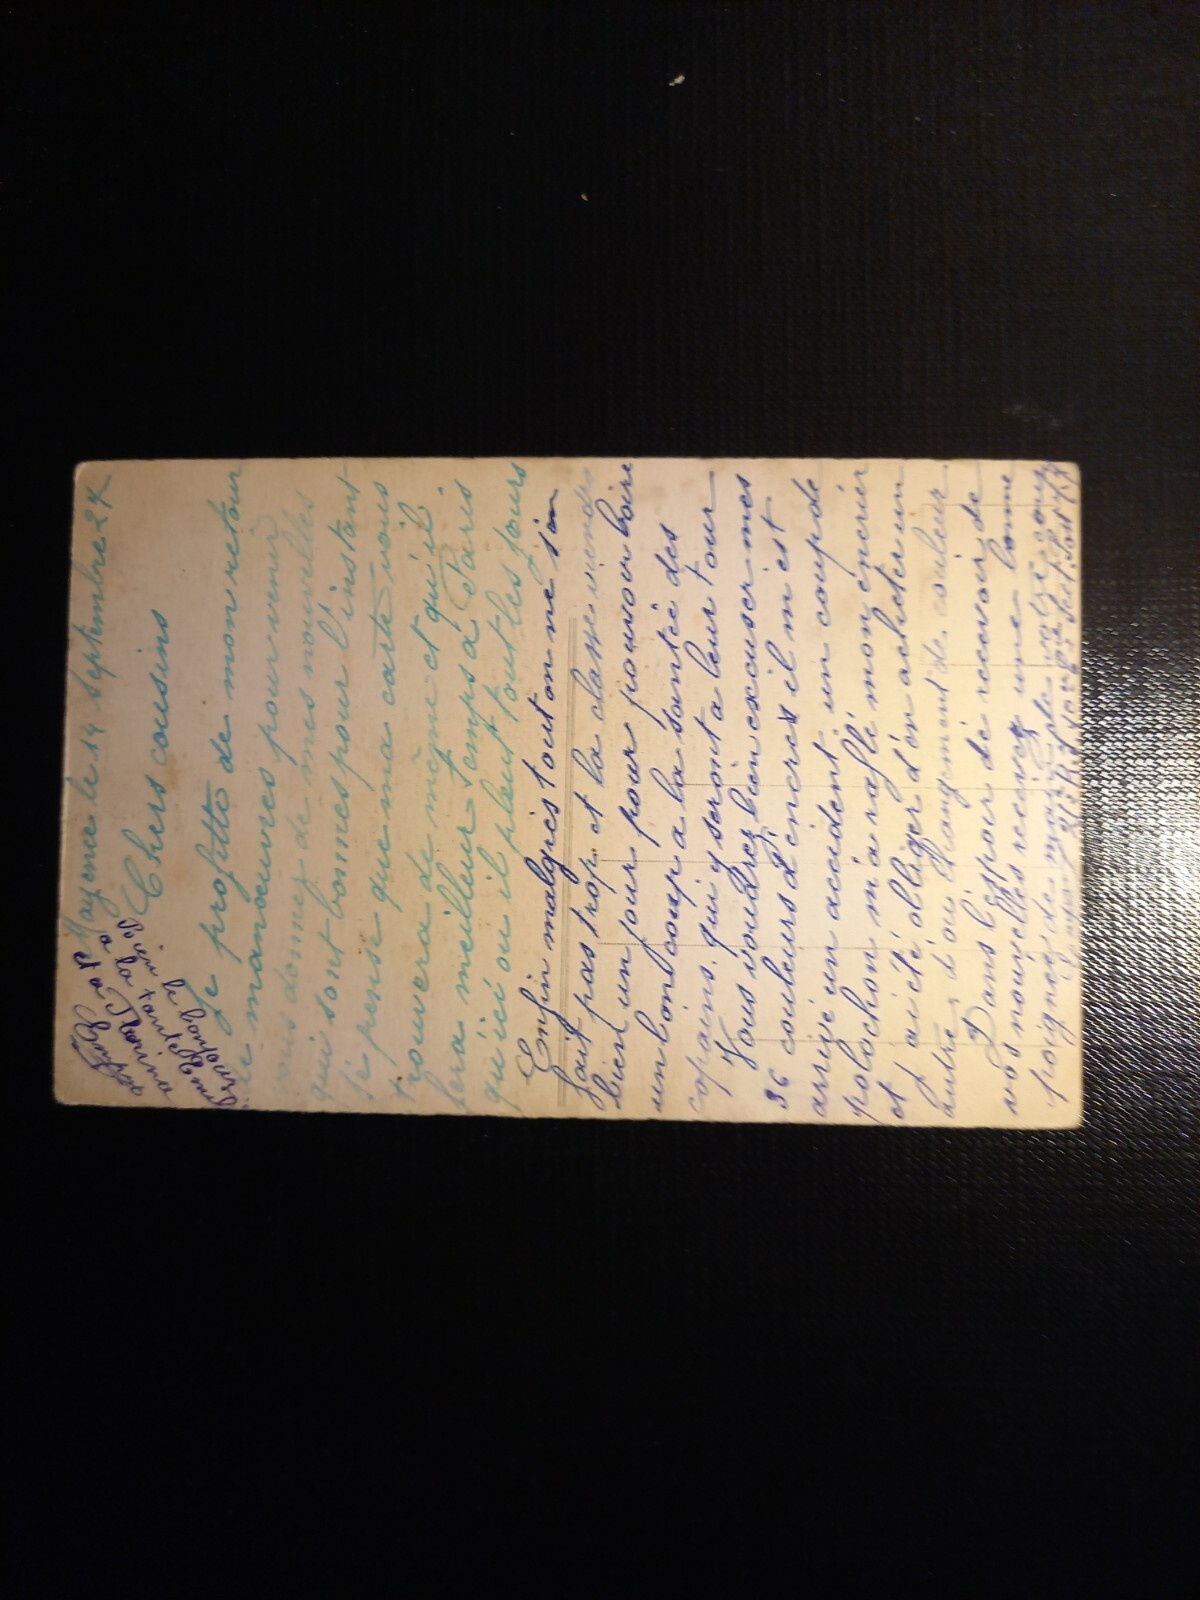 Mayence le 14 Septembre 24
Chers cousins
Je profitte de mon retour
de manoeuvres pour venir
vous donnez de mes nouvelles
qui sont bonnes pour l'instant
je pense que ma carte vous
trouvera de même et qu'il
fera meilleur temps a Paris
qu'ici ou il pleut tout les jours
Enfin malgrès tout on ne s'en
fait pas trop et la classe viendra
bien un jour pour pouvoir boire
un bon coup a la santée des
copains. qui y seront a leur tour
Vous voudrez bien excuser mes
36 couleurs d'encres il m'est
arrivé un accident un coup de
polochon m'a raflé mon encrier
et j'ai été obliger d'en acheter un
autre d'ou changement de couleur
Dans l'espoir de recevoir de
vos nouvelles recevez une bonne
poignée de main de votre cousin